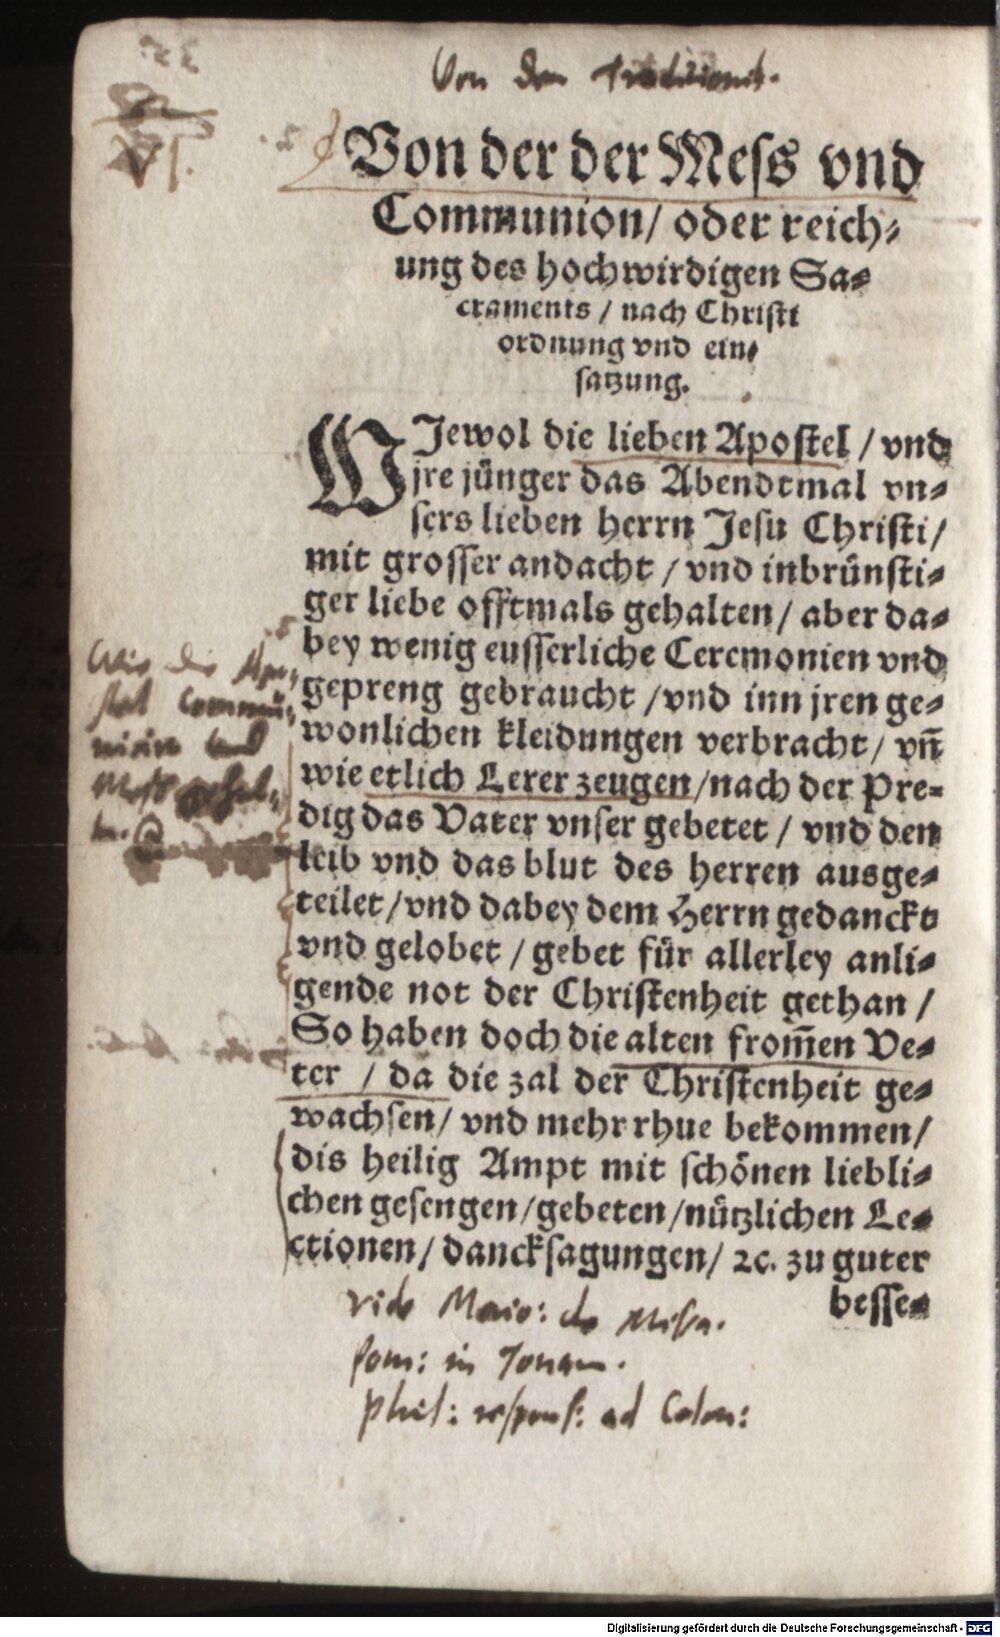 Von den Traditionib.
VI.
Von der der Mess vnd
Communion/ oder reich⸗
ung des hochwirdigen Sa⸗
craments / nach Christi
ordnung vnd ein⸗
satzung.
WJewol die lieben Apostel / vnd
jre jünger das Abendtmal vn⸗
sers lieben herrn Jesu Christi/
mit grosser andacht / vnd inbrünsti⸗
ger liebe offtmals gehalten/ aber da⸗
bey wenig eusserliche Ceremonien vnd
gepreng gebraucht /vnd inn jren ge⸗
wonlichen kleidungen verbracht/ vñ
wie etlich Lerer zeugen/nach der Pre⸗
dig das Vater vnser gebetet / vnd den
leib vnd das blut des herren ausge⸗
teilet/vnd dabey dem Herrn gedanckt
vnd gelobet / gebet für allerley anli⸗
gende not der Christenheit gethan /
So haben doch die alten from̄en Ve⸗
ter / da die zal der Christenheit ge⸗
wachsen/ vnd mehr rhue bekommen/
dis heilig Ampt mit schönen liebli⸗
chen gesengen/gebeten/nützlichen Le⸗
ctionen/ dancksagungen/ ꝛc. zu guter
besse⸗
Wie die Apo⸗
stel Commu⸗
nicirn vnd
Mess gehal⸗
vide Maio: de Missa.
in Jonam.
Phil: respons: ad Colon:
Digitalisierung gefördert durch die Deutsche Forschungsgemeinschaft - DFG